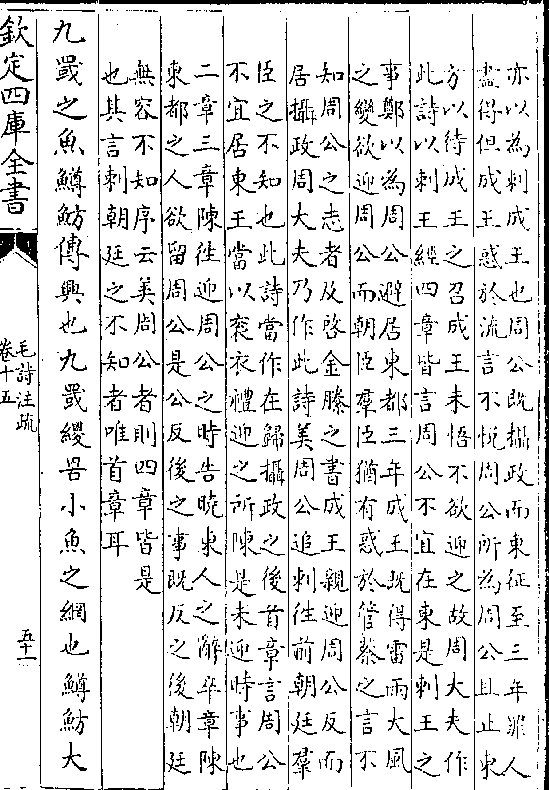 亦以為刺成王也周公既攝政而東征至三年罪人
盡得但成王惑於流言不悅周公所為周公且止東
方以待成王之召成王未悟不欲迎之故周大夫作
此詩以刺王經四章皆言周公不宜在東是刺王之
事鄭以為周公避居東都三年成王既得雷雨大風
之變欲迎周公而朝臣羣臣猶有惑於管蔡之言不
知周公之志者及啓金縢之書成王親迎周公反而
居攝政周大夫乃作此詩美周公追刺往前朝廷羣
臣之不知也此詩當作在歸攝政之後首章言周公
不宜居東王當以袞衣禮迎之所陳是未迎時事也
二章三章陳往迎周公之時告曉東人之辭卒章陳
東都之人欲留周公是公反後之事既反之後朝廷
無容不知序云美周公者則四章皆是
也其言刺朝廷之不知者唯首章耳
九罭之魚鱒魴傳興也九罭緵罟小魚之網也鱒魴大
欽定四庫全書
毛詩注疏
卷十五
五十一